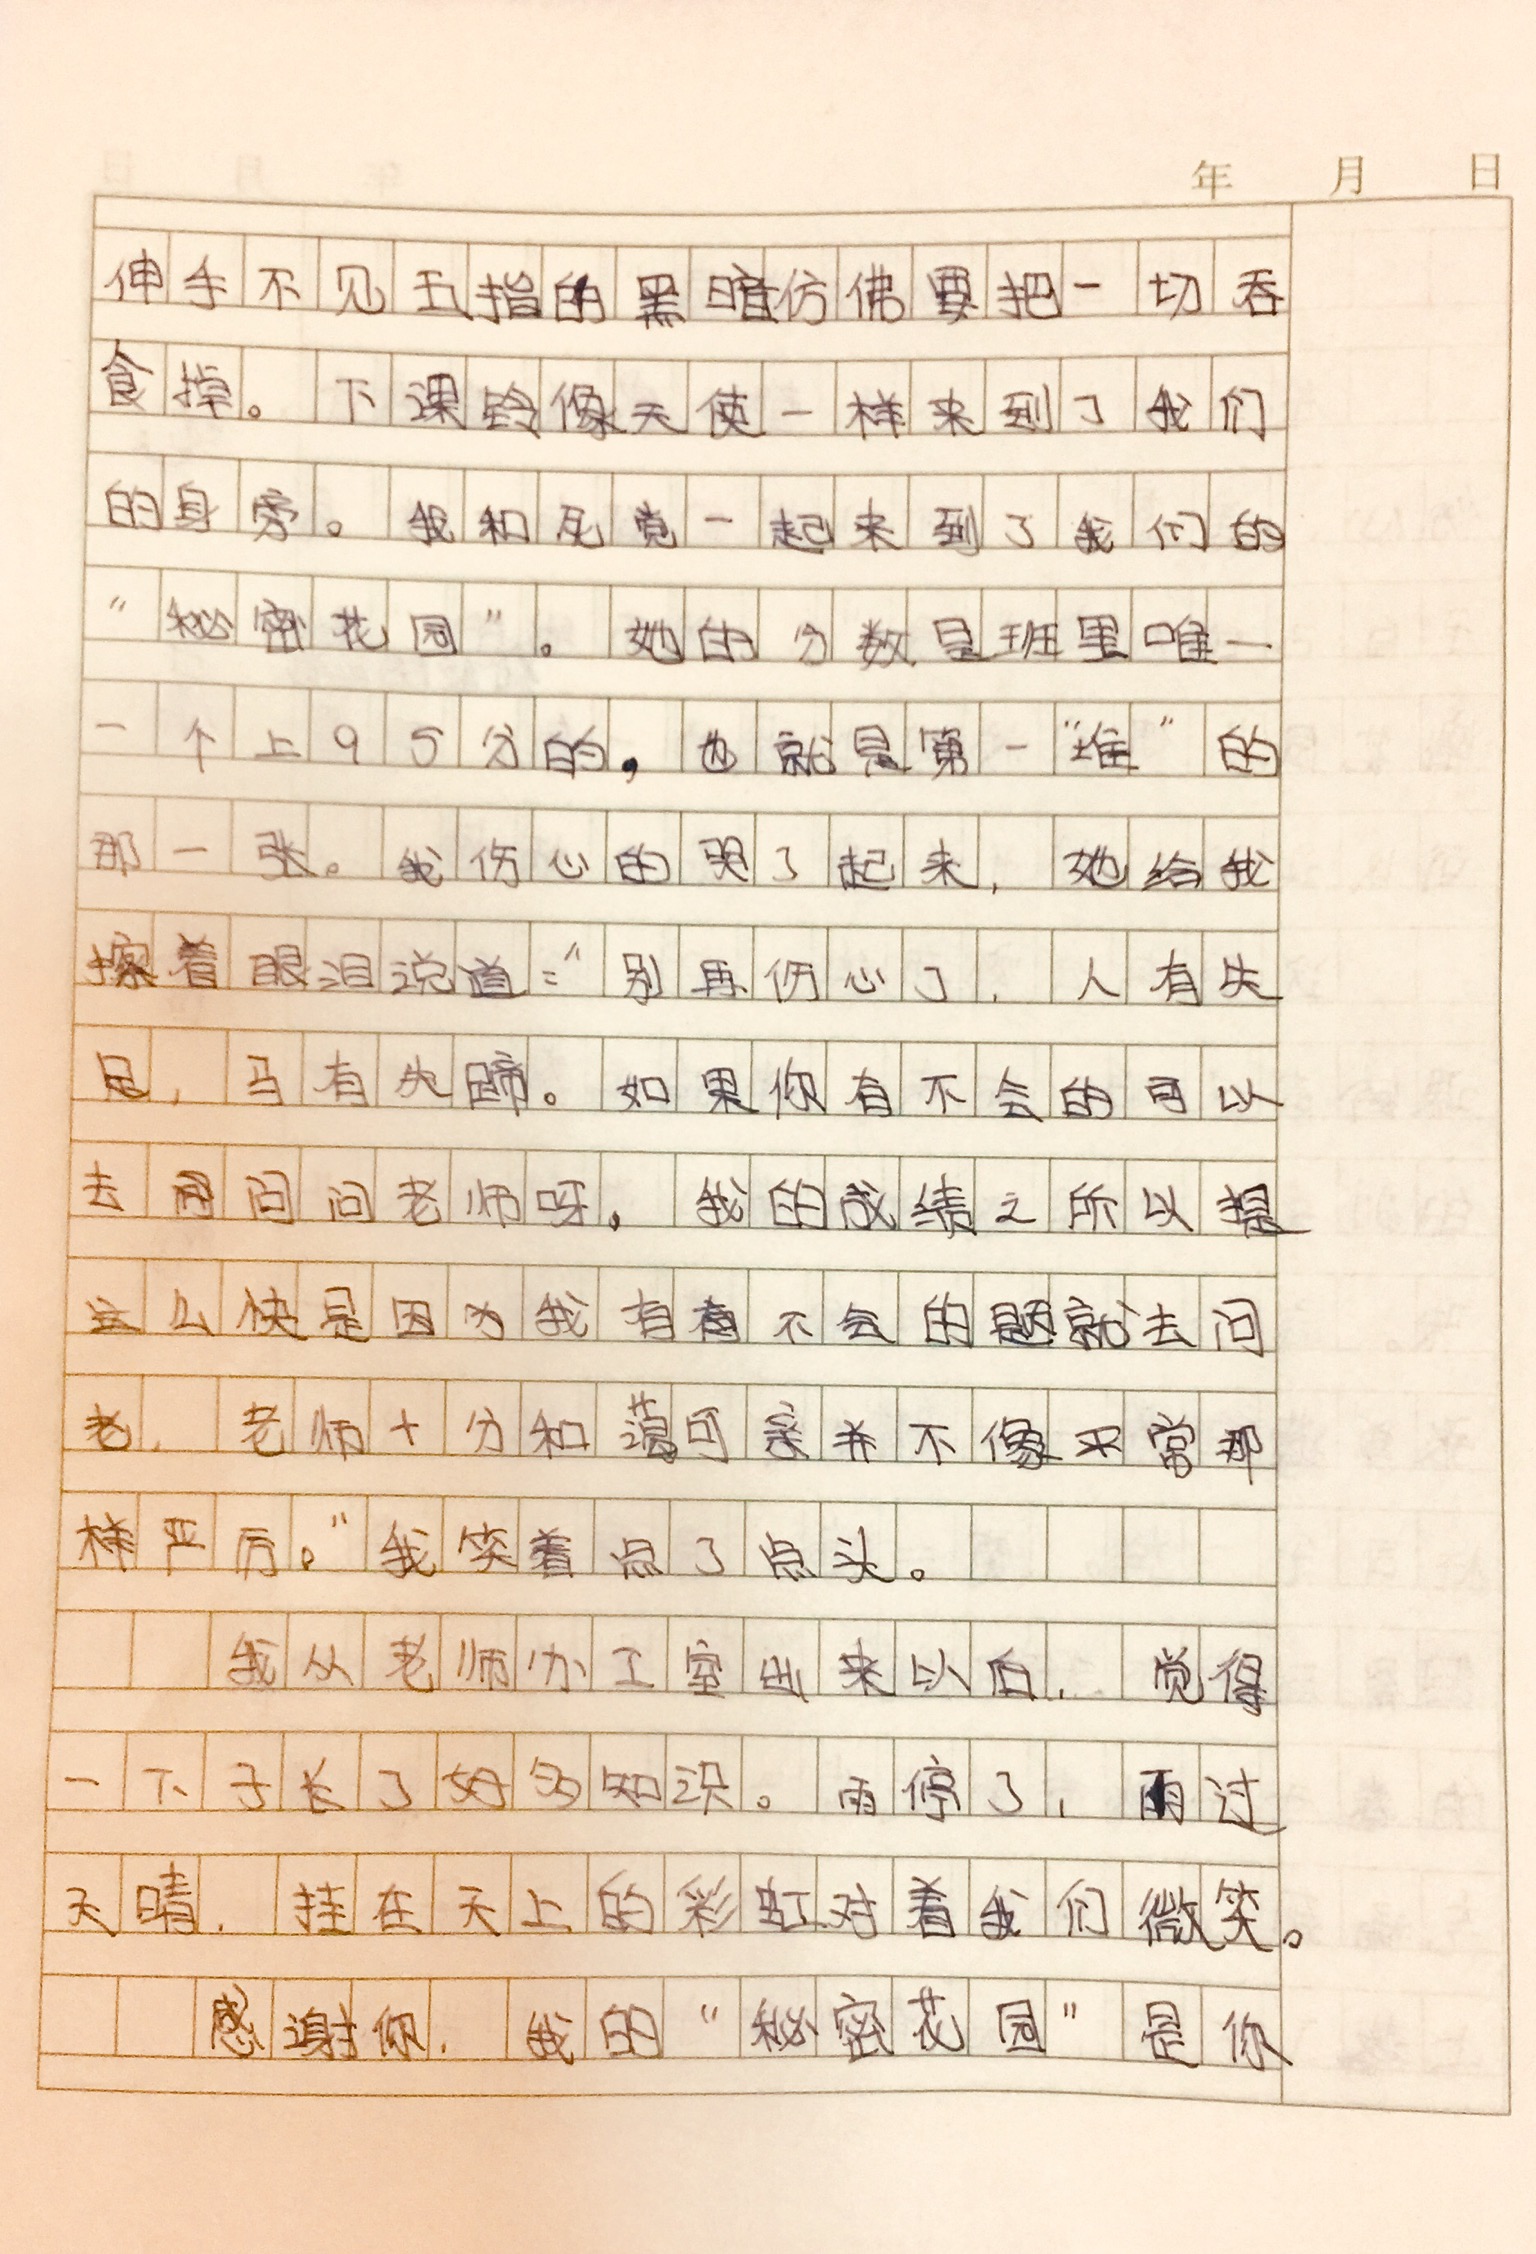 年 月 日
伸手不见五指的黑暗仿佛要把一切吞
食掉。下课铃像天使一样来到了我们
的身旁。我和死党一起来到了我们的
“秘密花园”。她的分数是班里唯一
一个上95分的,也就是第一“堆”的
那一张。我伤心的哭了起来,她给我
擦着眼泪说道:“别再伤心了,人有失
足,马有失蹄。如果你有不会的可以
去问问老师呀。我的成绩之所以提
这么快是因为我有不会的题就去问
老,老师十分和蔼可亲并不像平常那
样严厉。”我笑着点了点头。
我从老师办工室出来以后,觉得
一下子长了好多知识。雨停了,雨过
天晴,挂在天上的彩虹对着我们微笑。
感谢你,我的“秘密花园”是你